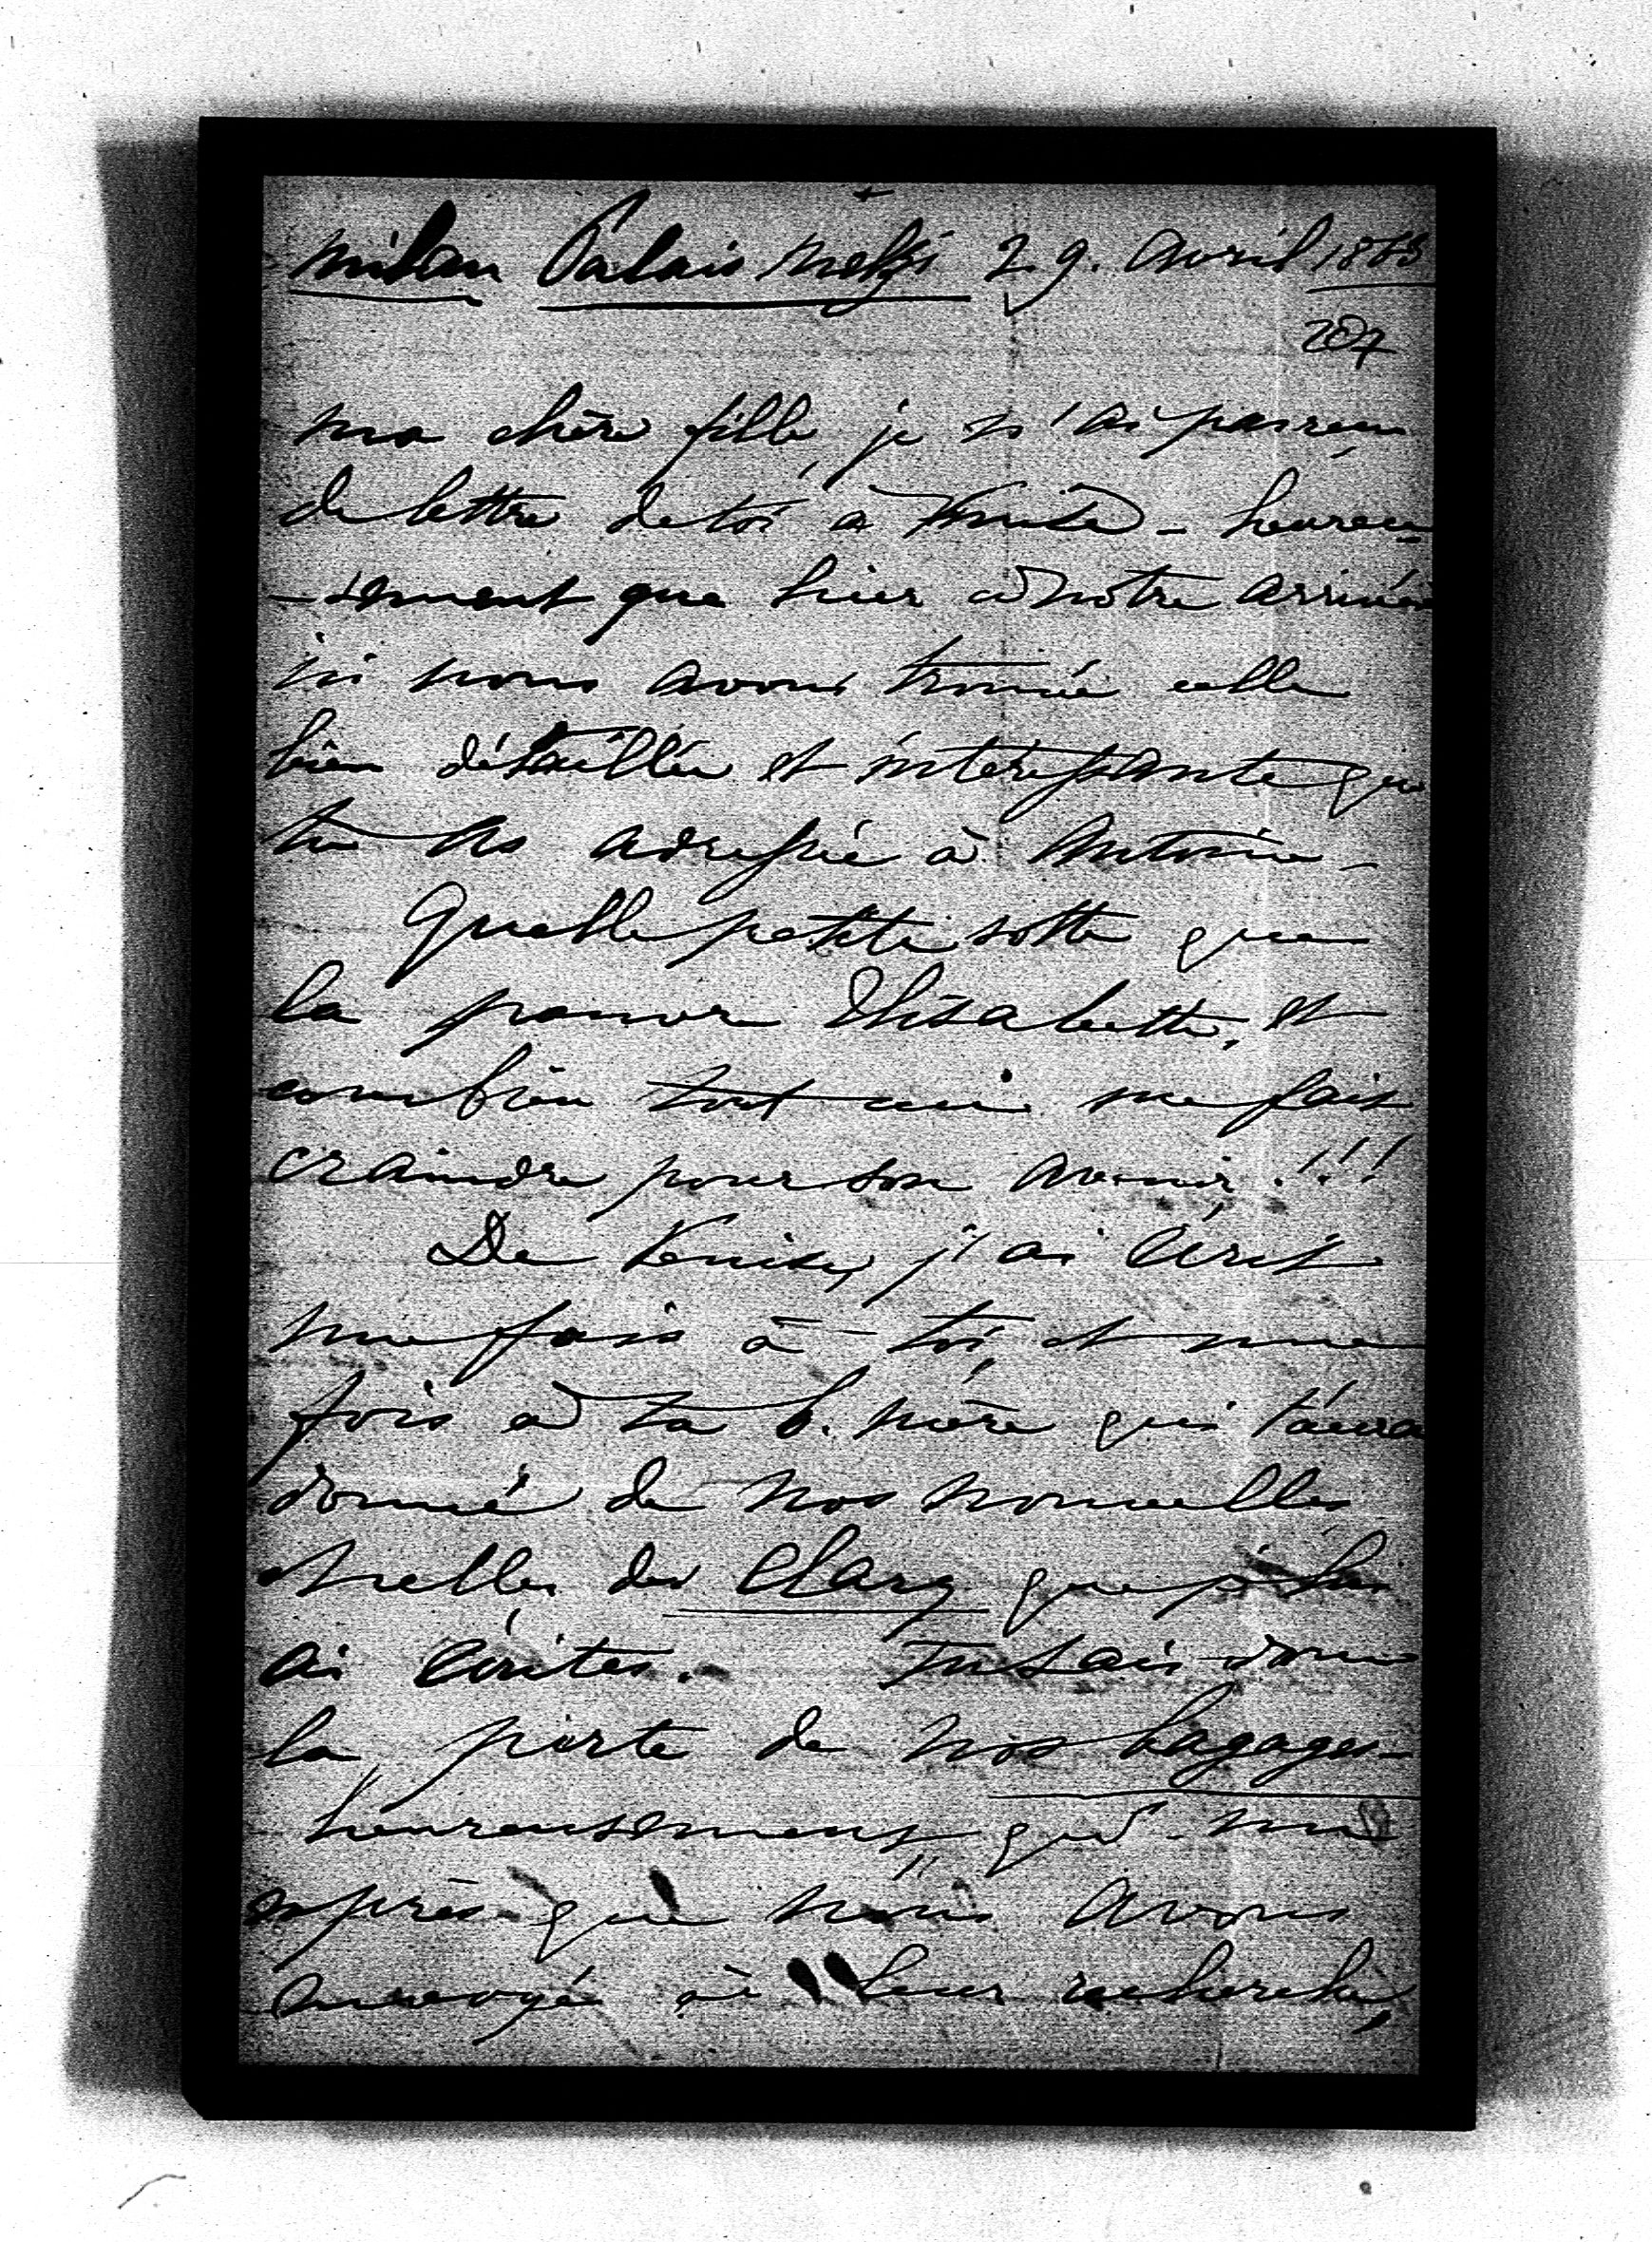 Milan Palais Melzi 29. Avril
207
ma chère fille, je n'ai pas reçu
de lettre de toi à Venise - heureu-
-sement que hier à notre arrivée
ici nous avons trouvée celle
bien détaillée et intéressante que
tu as adressée à Antoine -
Quelle petite sotte que
la pauvre Elisabette, et
combien tout ceci me fait
craindre pour son avenir !!!
De Venise, j'ai écrit
une fois à toi, et une
fois à ta b. mère qui t'aura
donné de nos nouvelles
et celles des Clary que je lui
ai écrites. - Tu sais donc
la perte de nos bagages -
heureusement que
après que nous avons
envoyé à leur recherche,